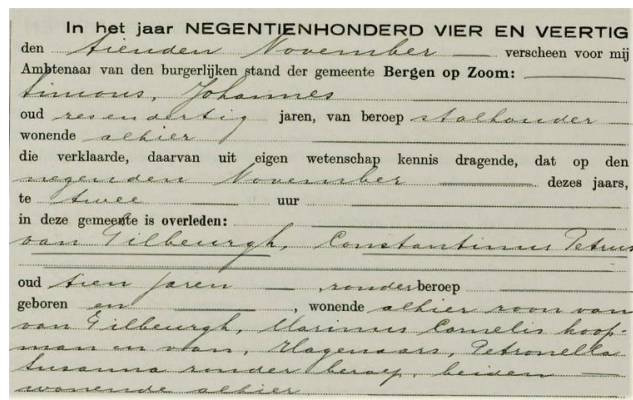 In het jaar NEGENTIENHONDERD VIER EN VEERTIG
den tienden November verscheen voor mij
Ambtenaar van den burgerlijken stand der gemeente Bergen op Zoom:
Simons, Johannes
oud zesendertig jaren, van beroep stalhouder
wonende alhier
die verklaarde, daarvan uit eigen wetenschap kennis dragende, dat op den
negenden November dezes jaars,
te twee uur
in deze gemeente is overleden:
van Gilbeurgh, Constantinus Petrus
oud tien jaren, zonder beroep
geboren en, wonende alhier zoon van
van Gilbeurgh, Marinus Cornelis koop-
man en van, Hagenaars, Petronella
Susanna zonder beroep, beiden
wonende alhier